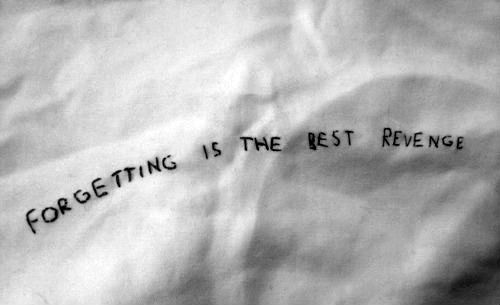 FORGETTING IS THE BEST REVENGE